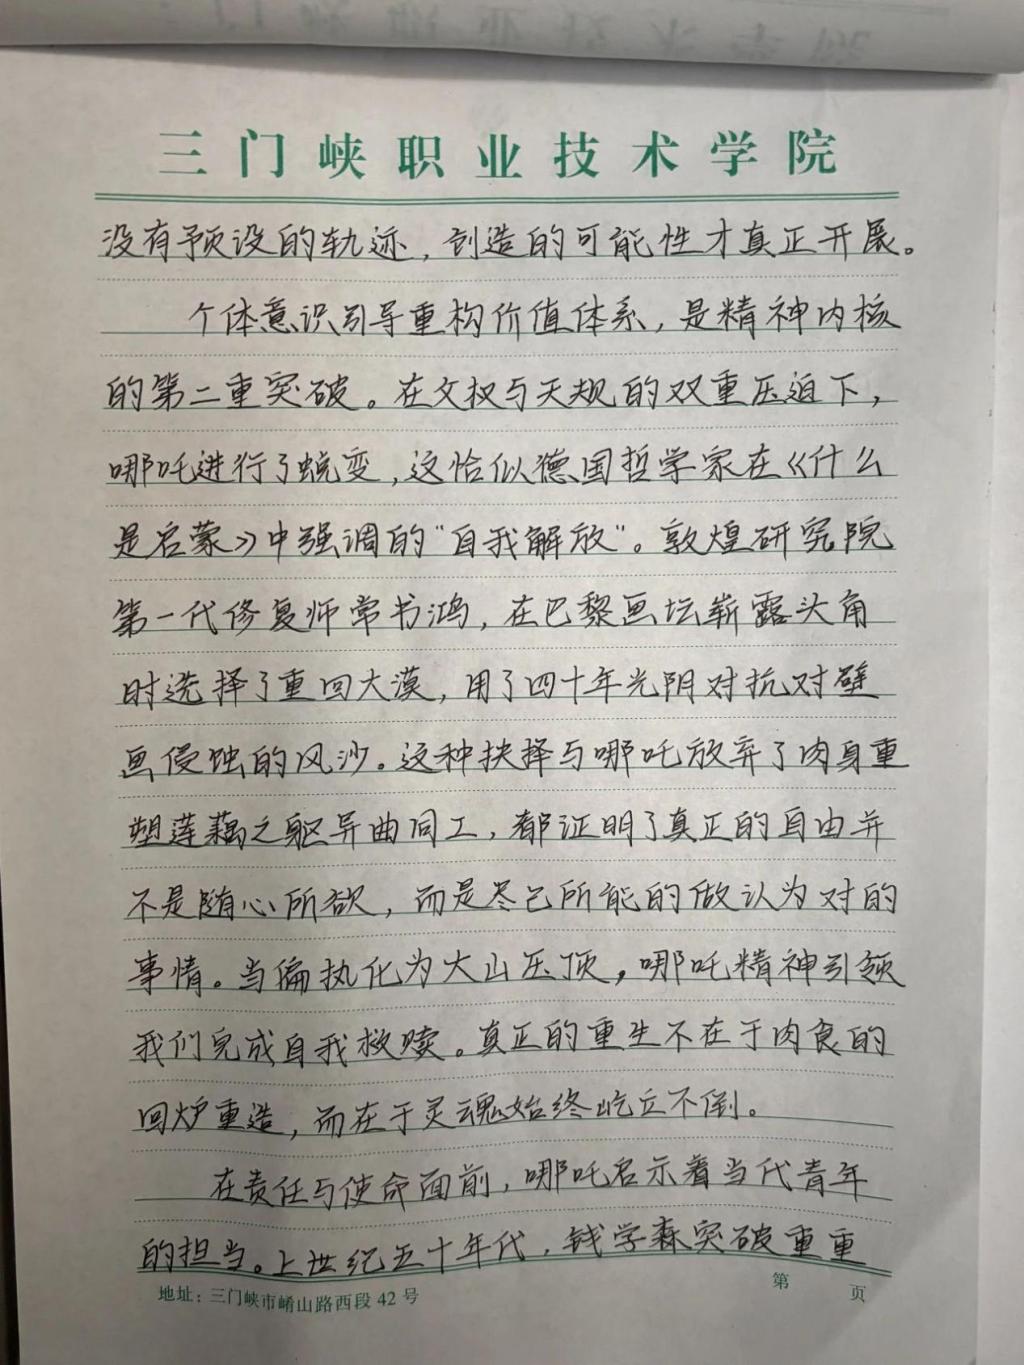 三门峡职业技术学院
没有预设的轨迹，创造的可能性才真正开展。
个体意识引导重构价值体系，是精神内核
的第二重突破。在文权与天规的双重压迫下，
哪吒进行了蜕变，这恰似德国哲学家在《什么
是启蒙》中强调的"自我解放"。敦煌研究院
第一代修复师常书鸿，在巴黎画坛崭露头角
时选择了重回大漠，用了四十年光阴对抗对壁
画侵蚀的风沙。这种抉择与哪吒放弃了肉身重
塑莲藕之躯异曲同工，都证明了真正的自由并
不是随心所欲，而是尽己所能的做认为对的
事情。当偏执化为大山压顶，哪吒精神引领
我们完成自我救赎。真正的重生不在于肉食的
回炉重造，而在于灵魂始终屹立不倒。
在责任与使命面前，哪吒启示着当代青年
的担当。上世纪五十年代，钱学森突破重重
地址：三门峡市崤山路西段 42 号
第 页